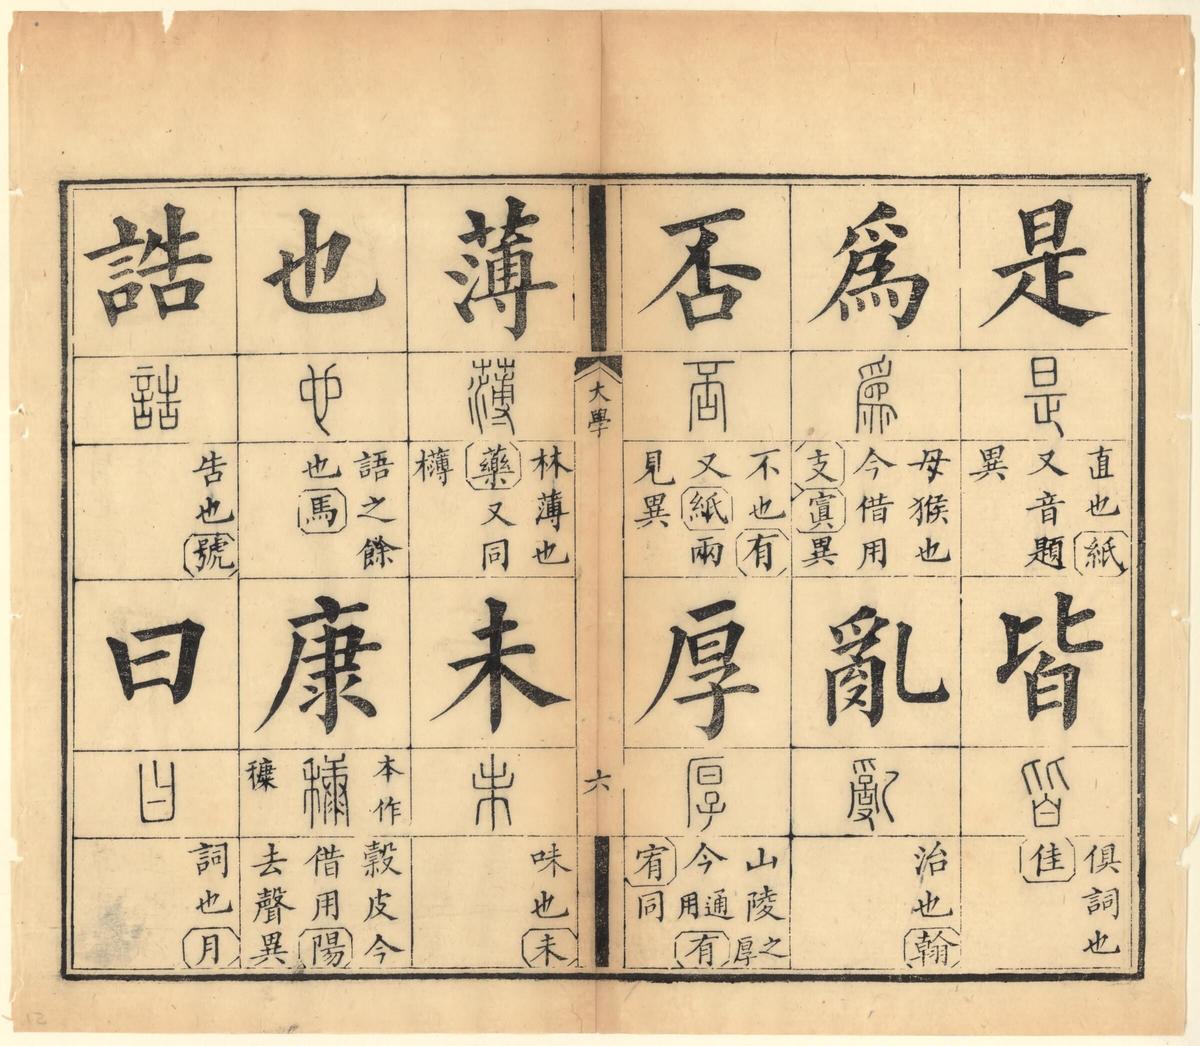 是
是
直也紙
又音題
異
皆
皆
俱詞也
佳
爲
爲
母猴也
今借用
支寘異
亂
亂
治也翰
否
否
不也有
又紙兩
見異
厚
厚
山陵之厚
今通用有
宥同
大學
六
薄
薄
林薄也
藥又同
欂
未
未
味也未
也
也
語之餘
也馬
康
本作
穅
穅
穀皮今
借用陽
去聲異
誥
誥
告也號
曰
曰
詞也月